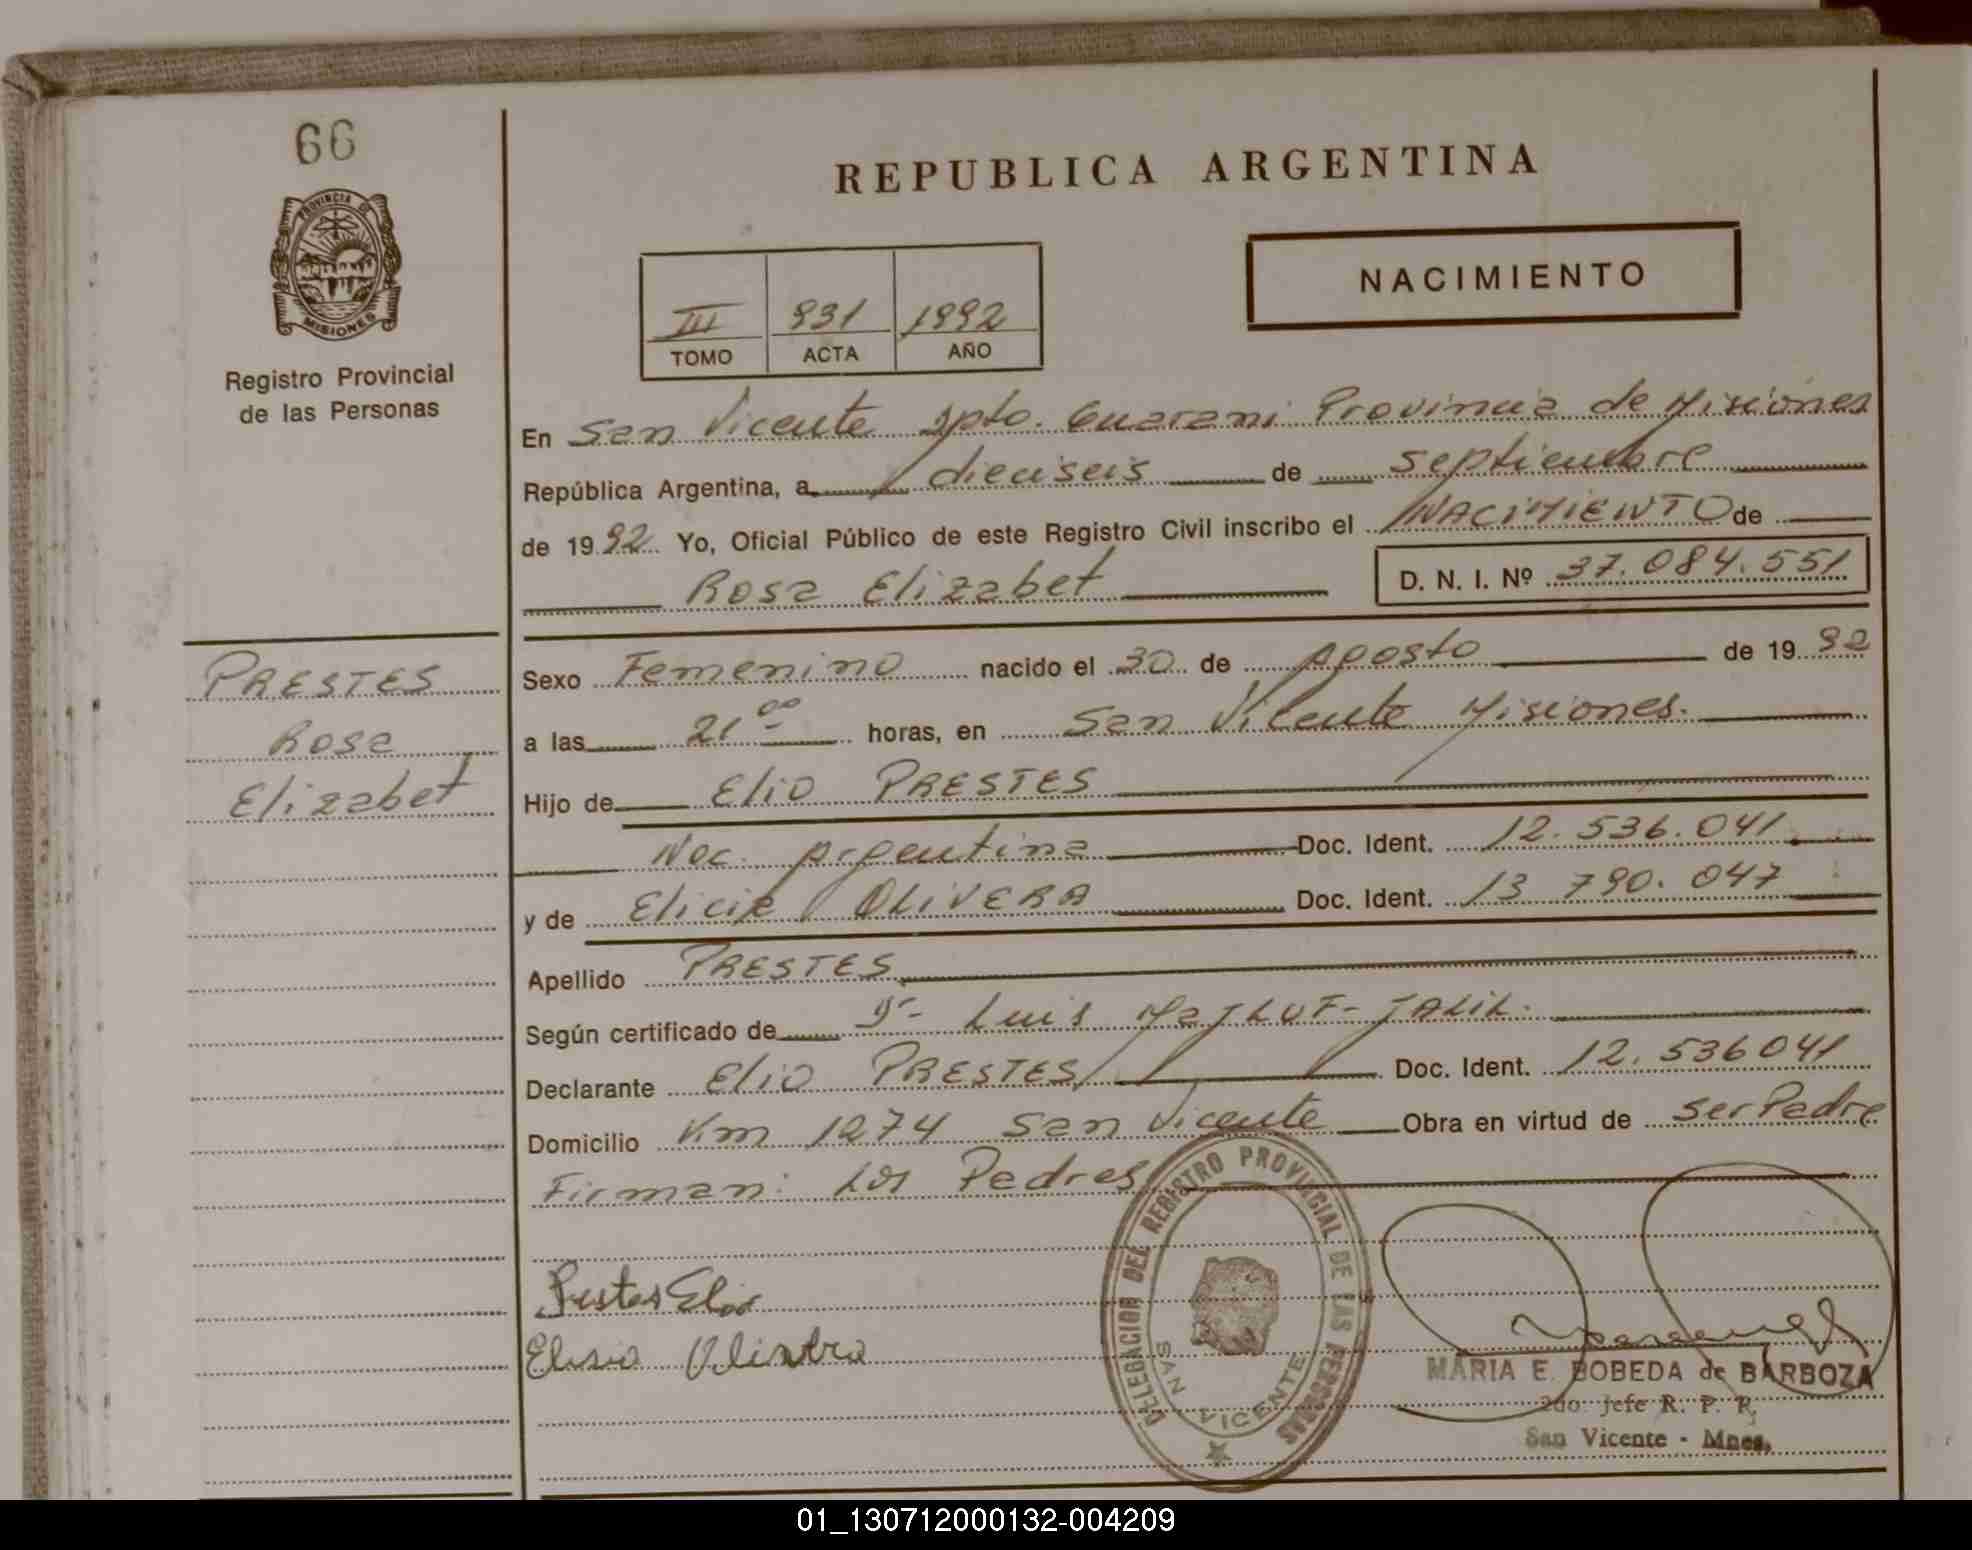 66
PROVINCIA DE
MISIONES
Registro Provincial
de las Personas
PRESTES
Rosa
Elizabet
REPUBLICA ARGENTINA
NACIMIENTO
III 931 1992
TOMO ACTA AÑO
En San Vicente Dpto. Guarani Provincia de Misiones
República Argentina, a dieciseis de septiembre
de 1992 Yo, Oficial Público de este Registro Civil inscribo el NACIMIENTO de
Rosa Elizabet D. N. I. Nº 37.084.551
Sexo Femenino nacido el 30 de Agosto de 1992
a las 21 00 horas, en San Vicente Misiones.
Hijo de Elio PRESTES
Nac. Argentina Doc. Ident. 12.536.041
y de Elicia OLIVERA Doc. Ident. 13 790.047
Apellido PRESTES
Según certificado de Dr Luis MaJLUF-JALIL.
Declarante Elio PRESTES Doc. Ident. 12.536041
Domicilio Km 1274 San Vicente Obra en virtud de ser Padre
Firman: Los Padres
Prestes Elio
DELEGACION DEL REGISTRO PROVINCIAL DE LAS PERSONAS
SAN VICENTE
MARIA E. BOBEDA de BARBOZA
2do. Jefe R. P. P.
San Vicente - Mnes.
01_130712000132-004209